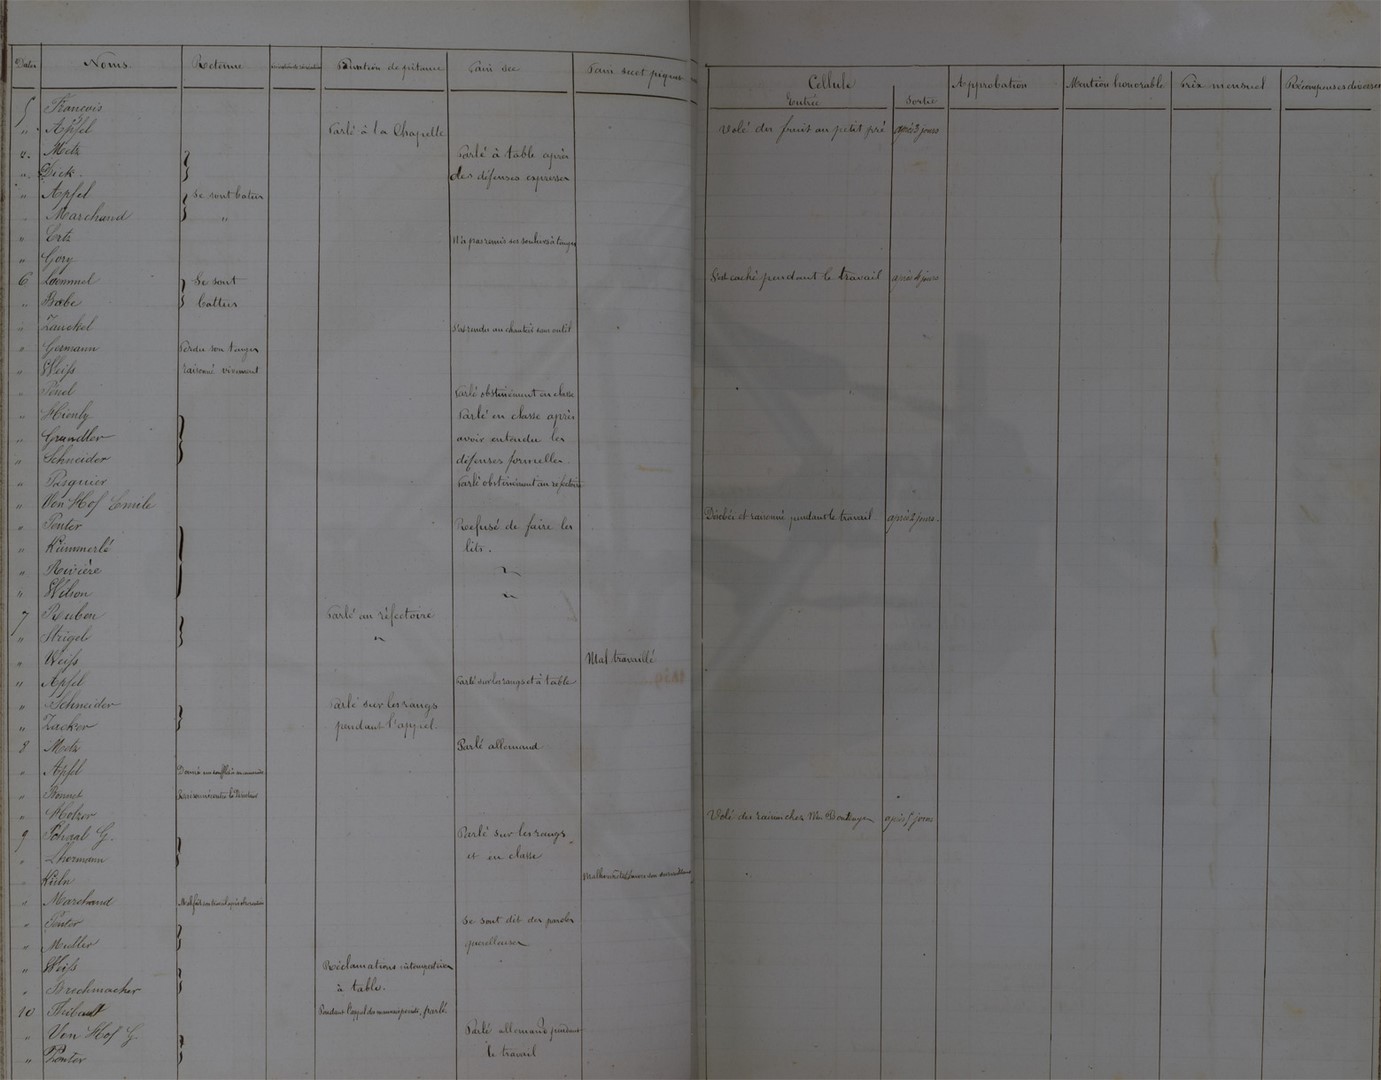 Dates Noms Retenue Privation de pitance Pain sec Pain sec et piquet Cellule Approbation Mention honorable Prix mensuel Récompenses diverses
Entrée Sortie
5 François
" Apfel Parlé à la Chapelle Volé des fruits au petit pré après 2 jours
" Metz Parlé à table après
" Dick. des défenses expresses
" Apfel Se sont battus
" Marchand "
" Ertz N'a pas remis ses souliers à temps
" Gory
6 Laemmel Se sont S'est caché pendant le travail après 4 jours
" Babe battus
" Zanckel S'est rendu au chantier sans outil
" Germann Perdu son temps
" Weiß raisonné vivement
" Parlé obstinément en classe
" Hienly Parlé en classe après
" Grundler avoir entendu les
" Schneider défenses formelles.
" Pasquier Parlé obstinément au réfectoire
" Von Hof Emile Désobéi et raisonné pendant le travail après 2 jours.
" Ponter Refusé de faire les
" Kümmerlé lits.
" Rivière "
" Wilson "
7 Ruben Parlé au réfectoire
" Strigel "
" Weiß Mal travaillé
" Apfel Parlé sur les rangs et à table
" Schneider Parlé sur les rangs
" Zacker pendant l'appel.
8 Metz Parlé allemand
" Apfel Donné un soufflet à un camarade
" Bonnet
" Holzer Volé des raisins chez Mr après 5 jours
9 Schaal G. Parlé sur les rangs
" Lhermann et en classe
" Kühn
" Marchand
" Ponter Se sont dit des paroles
" Muller querelleuses
" Weiß Réclamations intempestives
" Brechmacher à table.
10 Thibault Pendant l'appel parlé
" Von Hof G. Parlé allemand pendant
" Ponter le travail